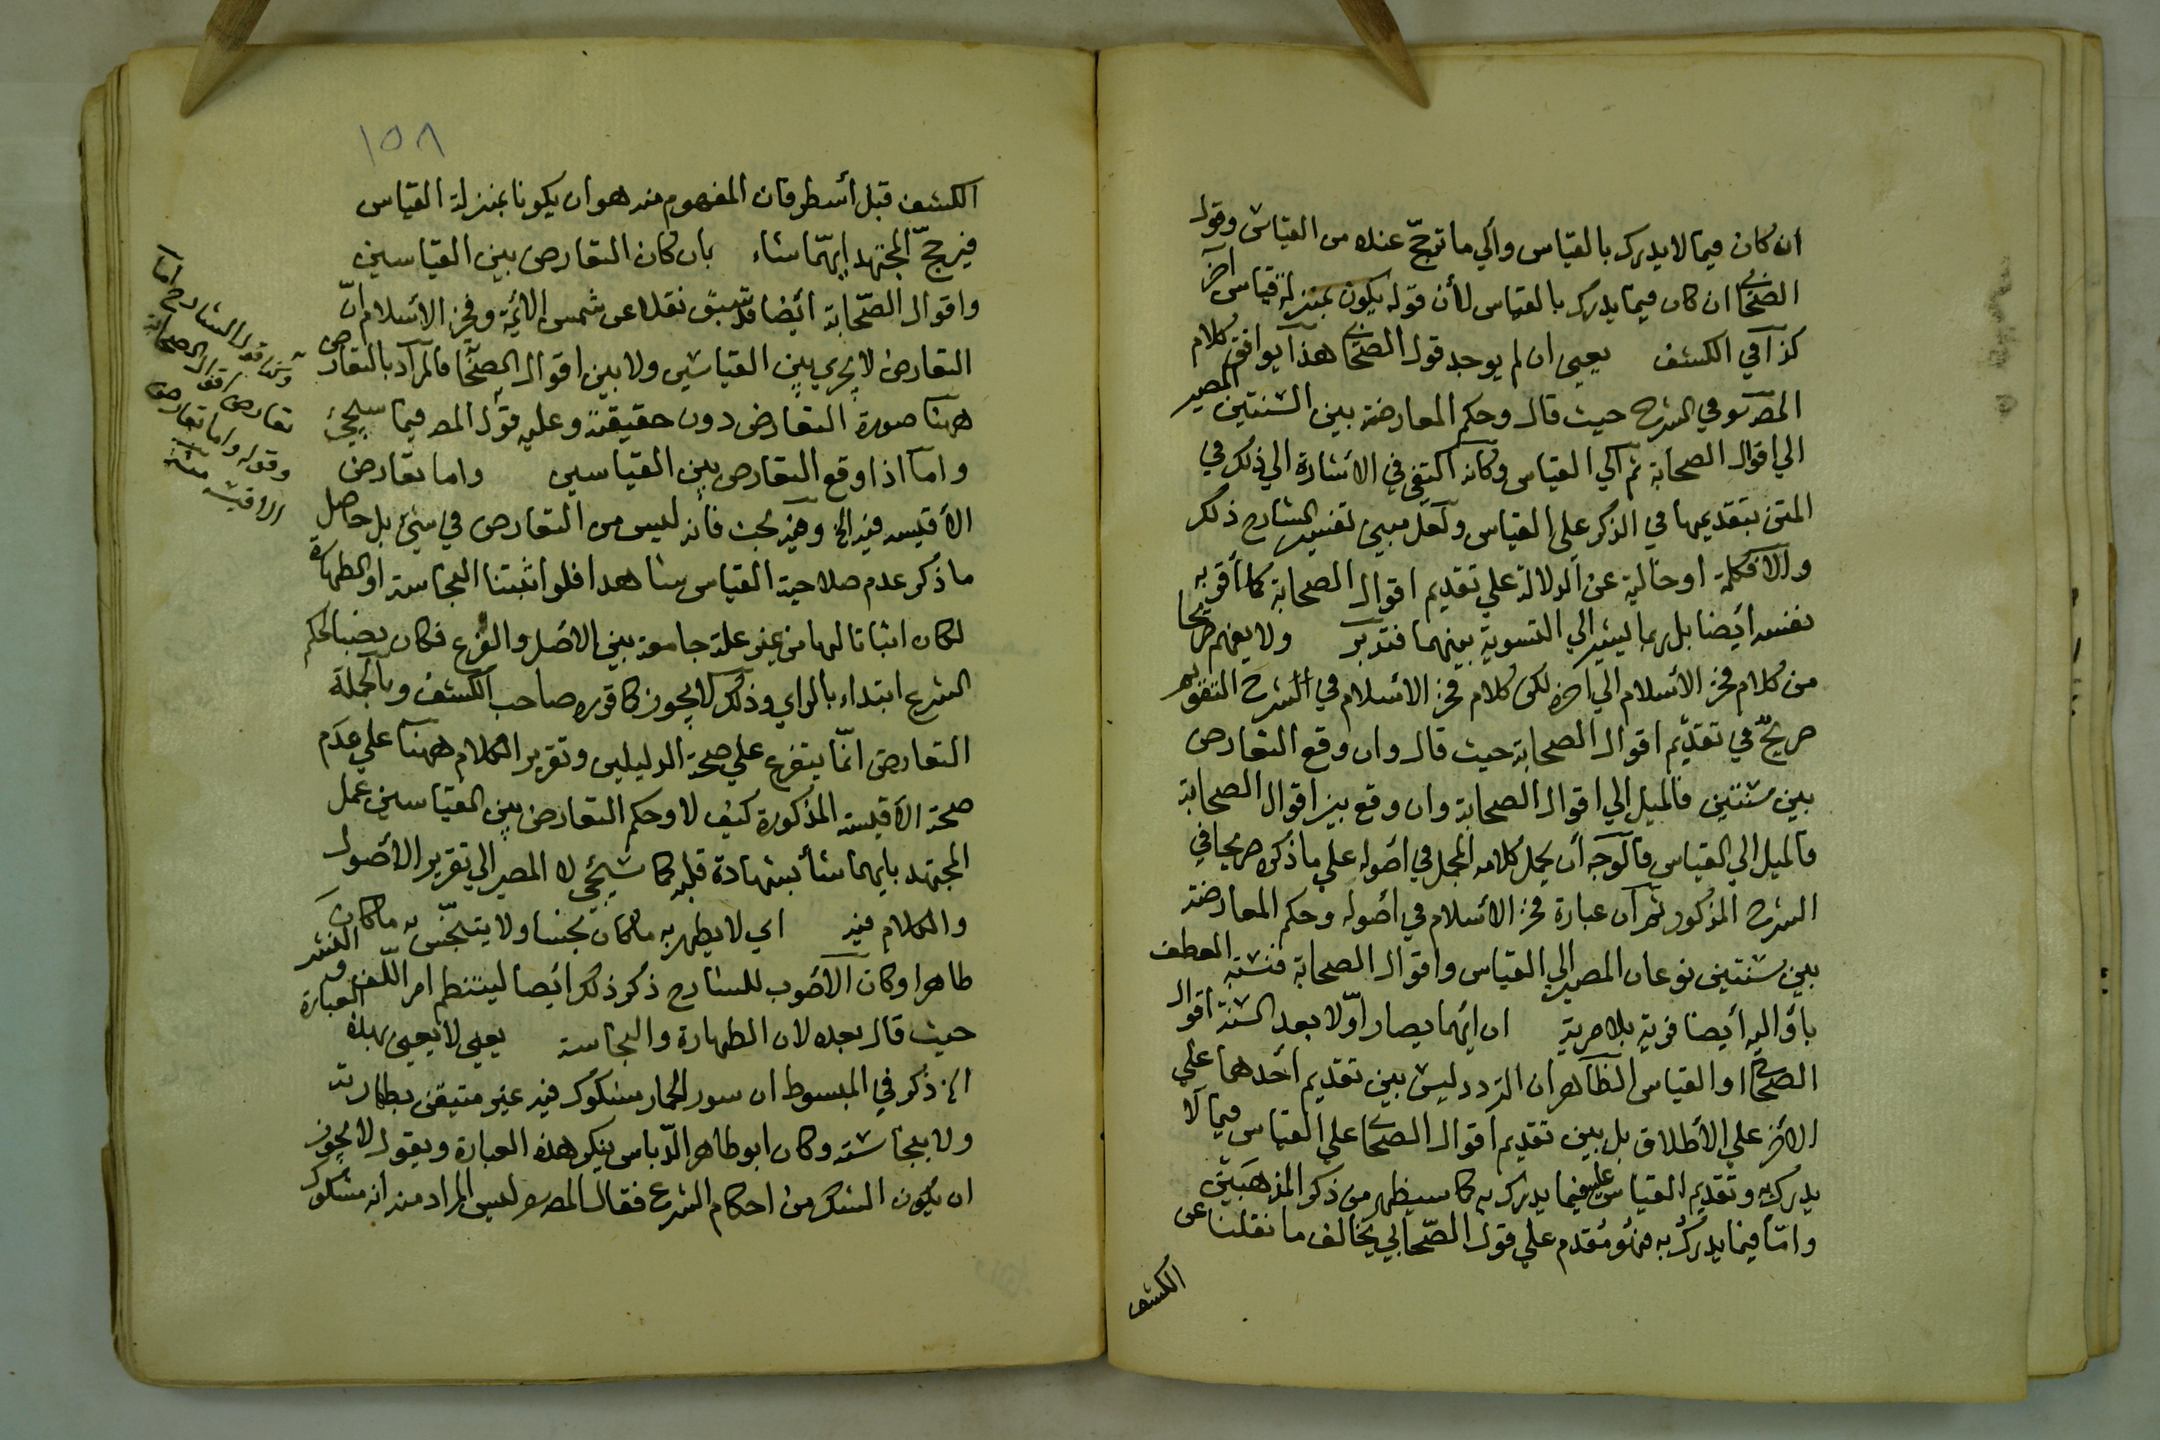 ان كان فيما لا يدرك بالقياس وألي ما ترجّح عنده من القياس وقول
الصحابي ان كان فيما يدرك بالقياس لأن قوله يكون بمنزلة قياس آخر
كذا في الكشف يعني ان لم يوجد قول الصحابي هذا يوافق كلام
المصر في الشرح حيث قال وحكم المعارضة بين السنتين المصير
الي اقوال الصحابة ثم الي القياس وكانه اكتفى في الاشارة الي ذلك في
المتن بتقديمها في الذكر علي القياس ولعل مبني تفسير الشارح ذلك
والا فكلمة او خالية عن الدلالة علي تقديم اقوال الصحابة كما أقرّ به
نفسه أيضا بل ربما يشير الي التسوية بينهما فتدبر ولا يفهم صريحا
من كلام فخر الأسلام الي آخره لكن كلام فخر الاسلام في الشرح التقويم
صريحٌ في تقديم اقوال الصحابة حيث قال وان وقع التعارض
بين سنتين فالميل الي اقوال الصحابة وان وقع بين اقوال الصحابة
فالميل الي القياس فالوجه أن يحمل كلامه المجمل في اصوله علي ما ذكره صريحا في
الشرح المذكور ثم ان عبارة فخر الأسلام في أصوله وحكم المعارضة
بين سنتين نوعان المصير الي القياس واقوال الصحابة فنسبة العطف
بأو اليه أيضا فرية بلا مرية ان ايّهما يصار اوّلا بعد السنة اقوال
الصحابي او القياس الظاهر ان التردد ليس بين تقديم أحدهما علي
الآخر علي الأطلاق بل بين تقديم اقوال الصحابي علي القياس فيما لا
يدرك به وتقديم القياس عليه فيما يدرك به كما سيظهر من ذكر المذهبين
وامّا فيما يدرك به فهُو مُقدم علي قول الصّحابي يخالف ما نقلنا عن
الكشف
١٥٨
الكشف قبل أسطر فان المفهوم منه هو ان يكونا بمنزلة القياس
فيرجحّ المجتهد ايّهما شاء بان كان التعارض بين القياسين
واقوال الصّحابة أيضا قد سبق نقلا عن شمس الائمة وفخر الاسلام انّ
التعارض لا يجري بين القياسين ولا بين اقوال الصحابة فالمراد بالتعارض
ههنا صورة التعارض دون حقيقتة وعليه قول المصر فيما سيجئ
وامّا اذا وقع التعارض بين القياسين واما تعارض
الأقيسة فيه الخ وفيه بحث فانه ليس من التعارض في شئ بل حاصل
ما ذكر عدم صلاحية القياس شاهدا فلو اثبتنا النجاسة او الطهارة
لكان اثباتا لها من غير علة جامعة بين الاصل والفرع فكان نصب الحكم
الشرع ابتداء بالراي وذلك لا يجوز كما قرره صاحب الكشف وبالجملة
التعارض انّما يتفرع علي صحة الدليلين وتقرير الكلام ههنا علي عدم
صحة الأقيسة المذكورة كيف لا وحكم التعارض بين القياسين عمل
المجتهد بايهما شاء بشهادة قلبه كما سيجئ لا المصير الي تقرير الأصول
والكلام فيه اي لا يطهر به ما كان نجسا ولا يتنجّس به ما كان
طاهرا وكان الأصوب للشارح ذكر ذلك أيضا لينتظم امر اللّف والنشر
حيث قال بعده لان الطهارة والنجاسة يعني لا يعني بهذه العبارة
الخ ذكر في المبسوط ان سور الحمار مشكوك فيه غير متيقن بطهارته
ولا بنجاسته وكان ابو طاهر الدّباس ينكر هذه العبارة ويقول لا يجوز
ان يكون الشك من احكام الشرع فقال المصر ليس المراد منه انه مشكوك
قول الشارح اما
تعارض اقوال الصحابة
وقوله واما تعارض
الاقيسة منه